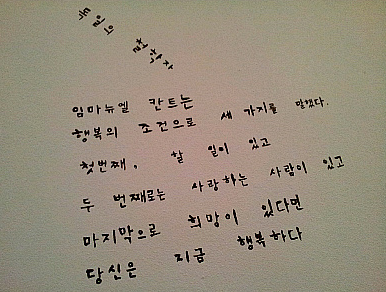 임마뉴엘 칸트는
행복의 조건으로 세 가지를 말했다.
첫번째, 할 일이 있고
두 번째로는 사랑하는 사람이 있고
마지막으로 희망이 있다면
당신은 지금 행복하다